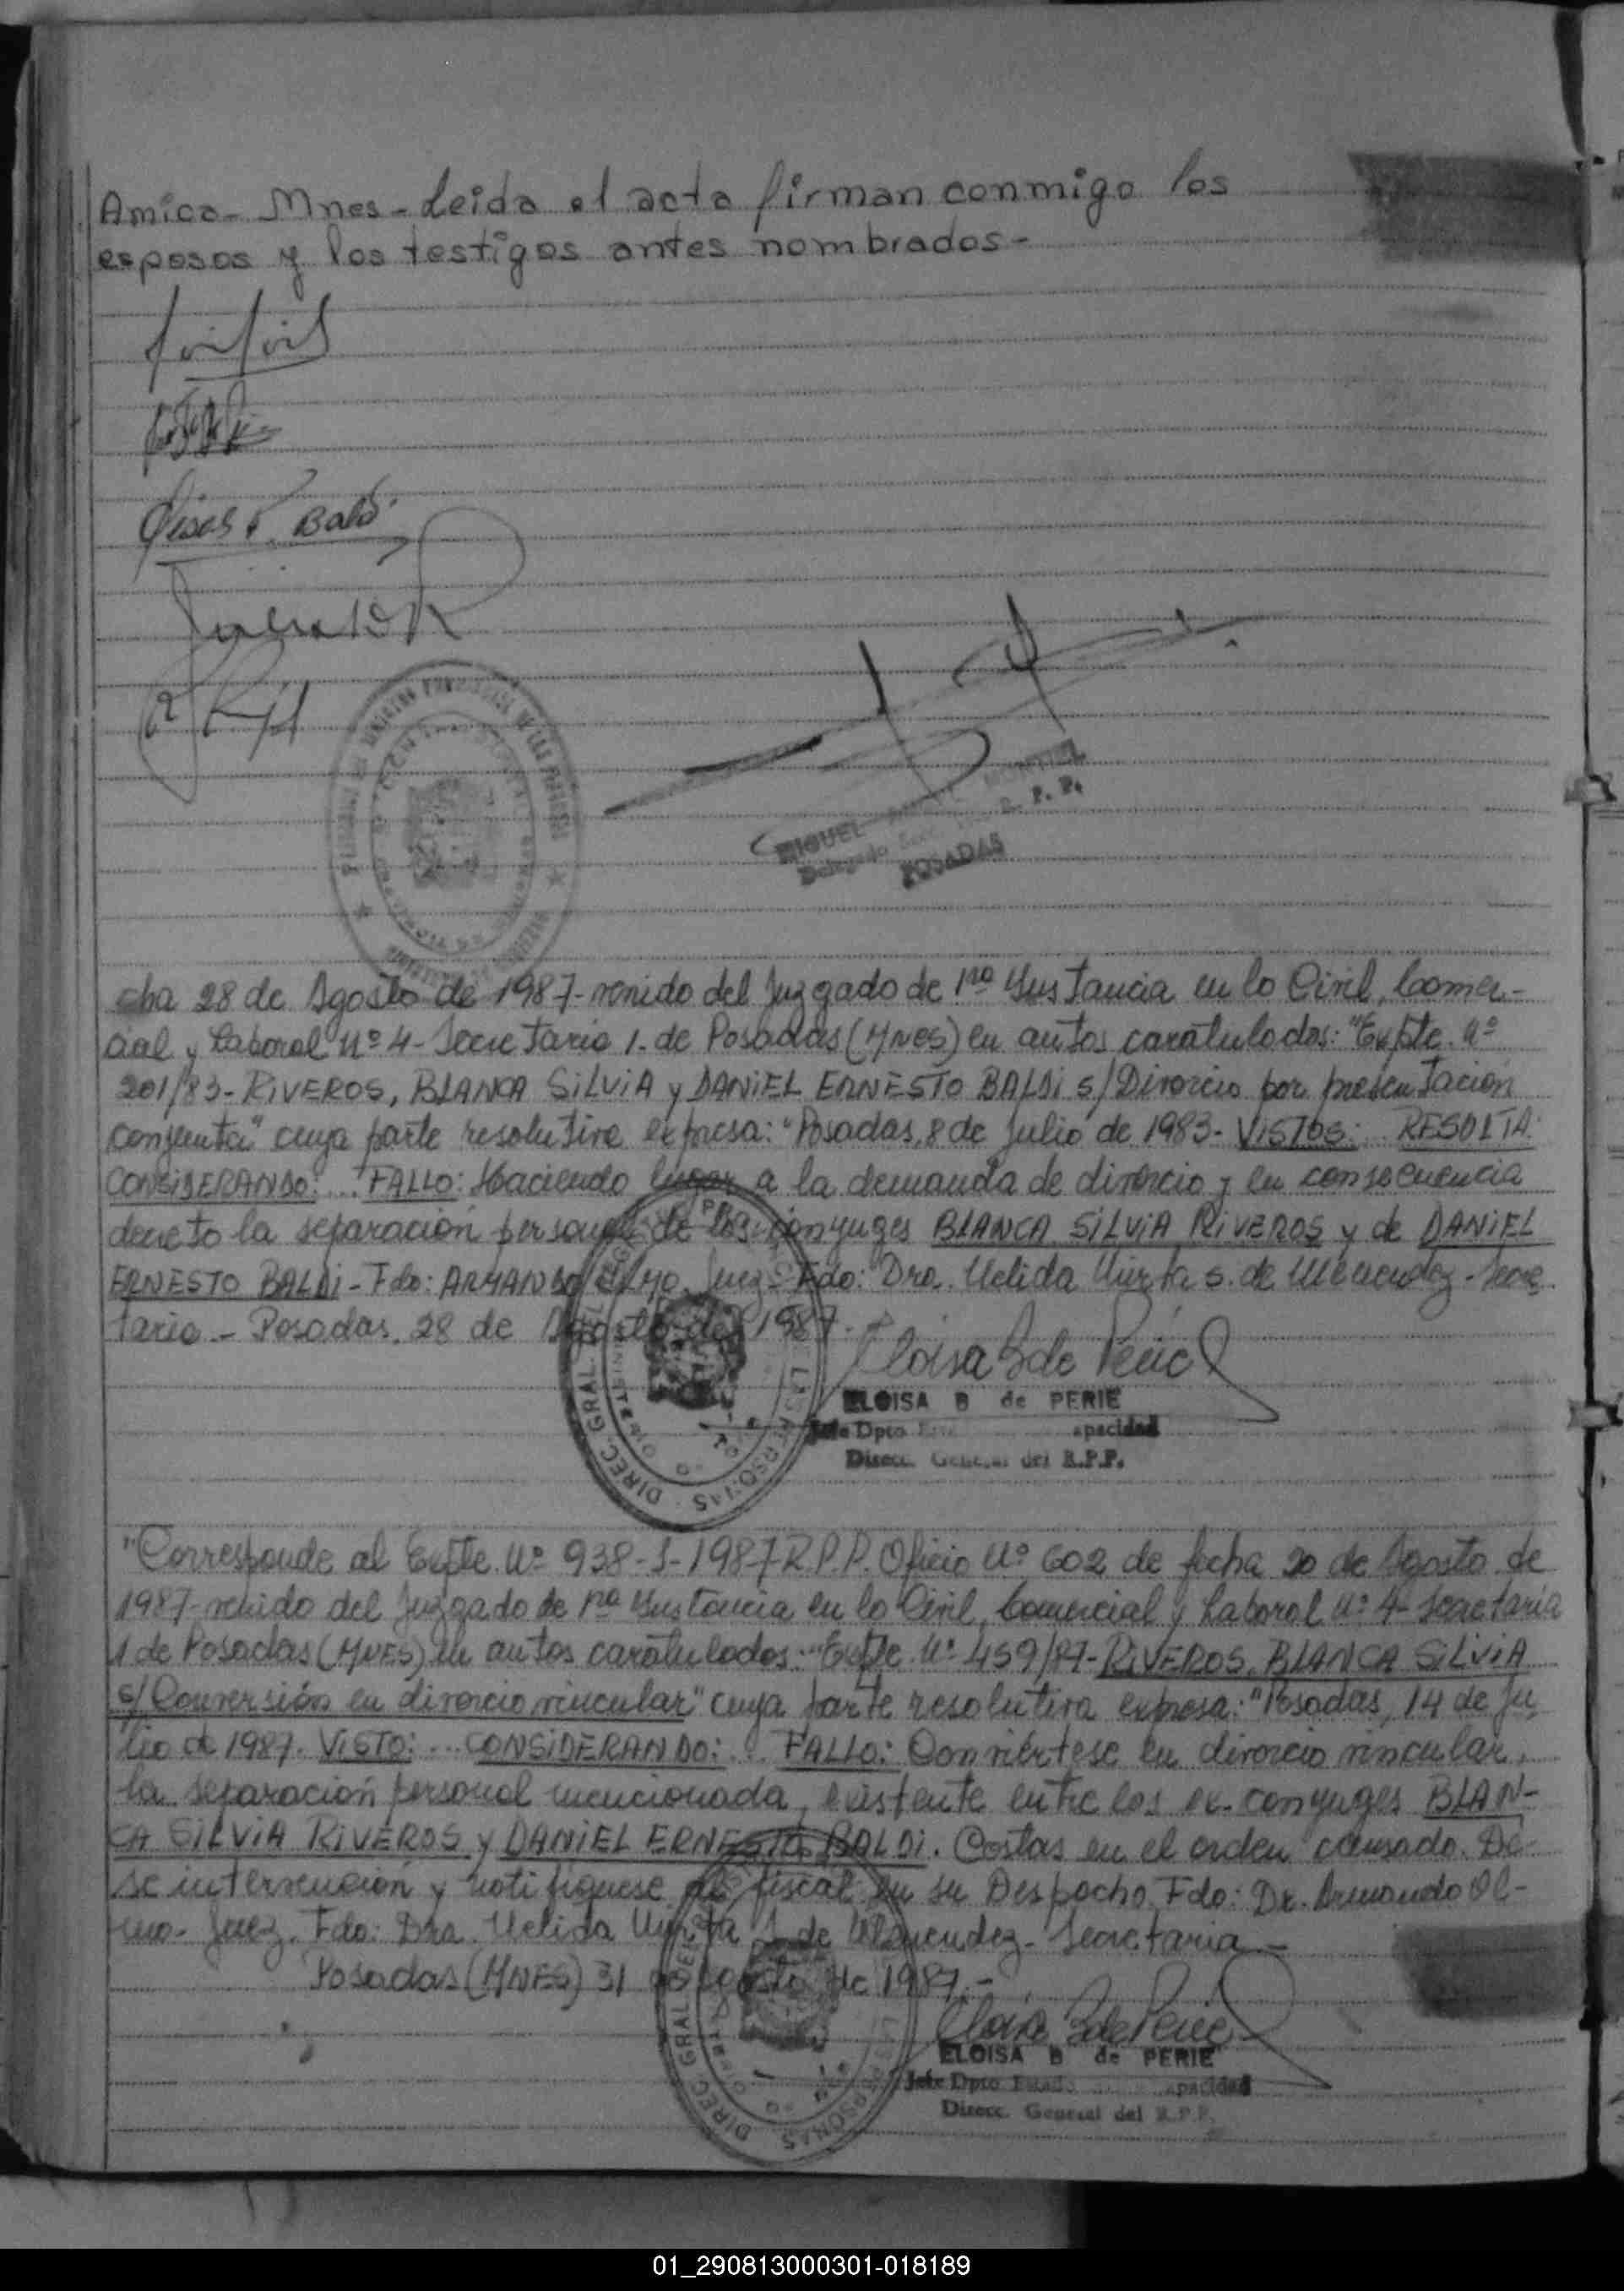 Amico - Mnes - Leida el acta firman conmigo los
esposos y los testigos antes nombrados -
Baldi
MIGUEL MONTIEL
Delegado R. P. P.
POSADAS
cha 28 de Agosto de 1987 - venido del Juzgado de 1ra Instancia en lo Civil, Comer-
cial y Laboral Nº 4 - Secretaria 1 - de Posadas (Mnes) en autos caratulados: "Expte. Nº
201/83 - RIVEROS, BLANCA SILVIA y DANIEL ERNESTO BALDI s/Divorcio por presentación
conjunta" cuya parte resolutiva expresa: "Posadas, 8 de Julio de 1983 - VISTOS: RESULTA:
CONSIDERANDO: ... FALLO: Haciendo lugar a la demanda de divorcio y en consecuencia
decreto la separación personal de los conyuges BLANCA SILVIA RIVEROS y de DANIEL
ERNESTO BALDI - Fdo: ARMANDO OLMO. Juez - Fdo: Dra. Nelida Mirta S. de Menendez - Secre
taria - Posadas, 28 de Agosto de 1987. -
Eloisa B de Perie
ELOISA B de PERIE
Jefe Dpto Est apacidad
Direcc. General del R.P.P.
DIREC. GRAL. DEL REG. PROV. DE LAS PERSONAS
"Corresponde al Expte. Nº 938-J-1987 R.P.P. Oficio Nº 602 de fecha 20 de Agosto de
1987 - venido del Juzgado de 1ra Instancia en lo Civil, Comercial y Laboral Nº 4 - Secretaria
1 de Posadas (MNES) en autos caratulados: "Expte. Nº 459/87 - RIVEROS, BLANCA SILVIA
s/Conversión en divorcio vincular" cuya parte resolutiva expresa: "Posadas, 14 de Ju
lio de 1987. VISTO: ... CONSIDERANDO: ... FALLO: Conviértese en divorcio vincular,
la separación personal mencionada, existente entre los ex-conyuges BLAN-
CA SILVIA RIVEROS y DANIEL ERNESTO BALDI. Costas en el orden causado. De
se intervención y notifiquese al fiscal en su Despacho. Fdo: Dr. Armando Ol-
mo - Juez. Fdo: Dra. Nelida Mirta S de Menendez - Secretaria -
Posadas (MNES) 31 de Agosto de 1987. -
Eloisa B de Perie
ELOISA B de PERIE
Jefe Dpto Estad apacidad
Direcc. General del R.P.P.
DIREC. GRAL. DEL PERSONAS
01_290813000301-018189